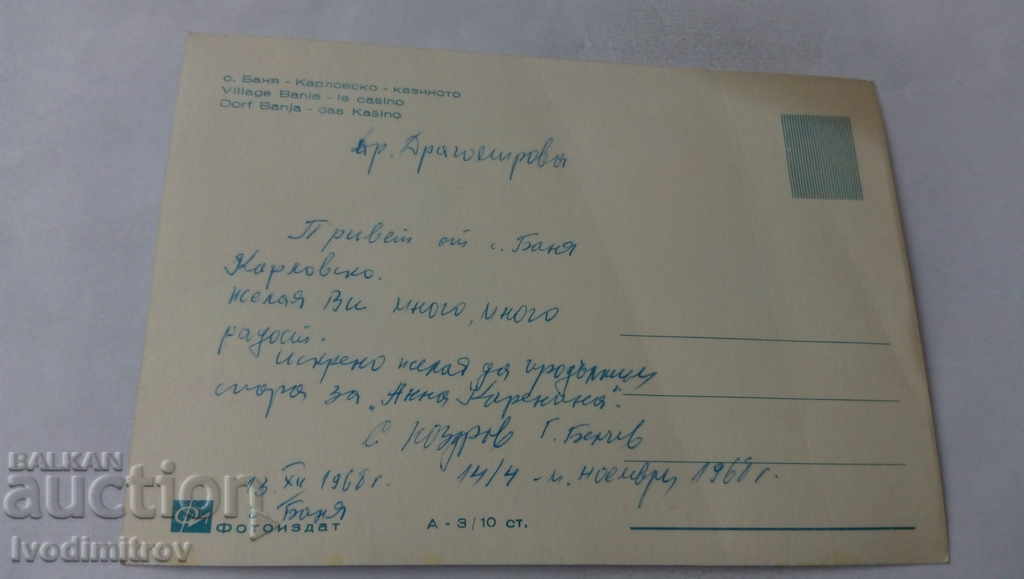 с. Баня - Карловско - казиното
Village Banja - le casino
Dorf Banja - das Kasino
др. Драгостирова
Привет от с. Баня
Карловско.
Желая Ви много, много
радост.
Искрено желая да продължи
спора за „Анна Каренина".
С поздрав Г. Бенчев
13. XII 1968 г. 14/4 - м. ноември 1968 г.
Баня
Фотоиздат
А - 3/10 ст.
BALKAN
auction
Ivodimitrov